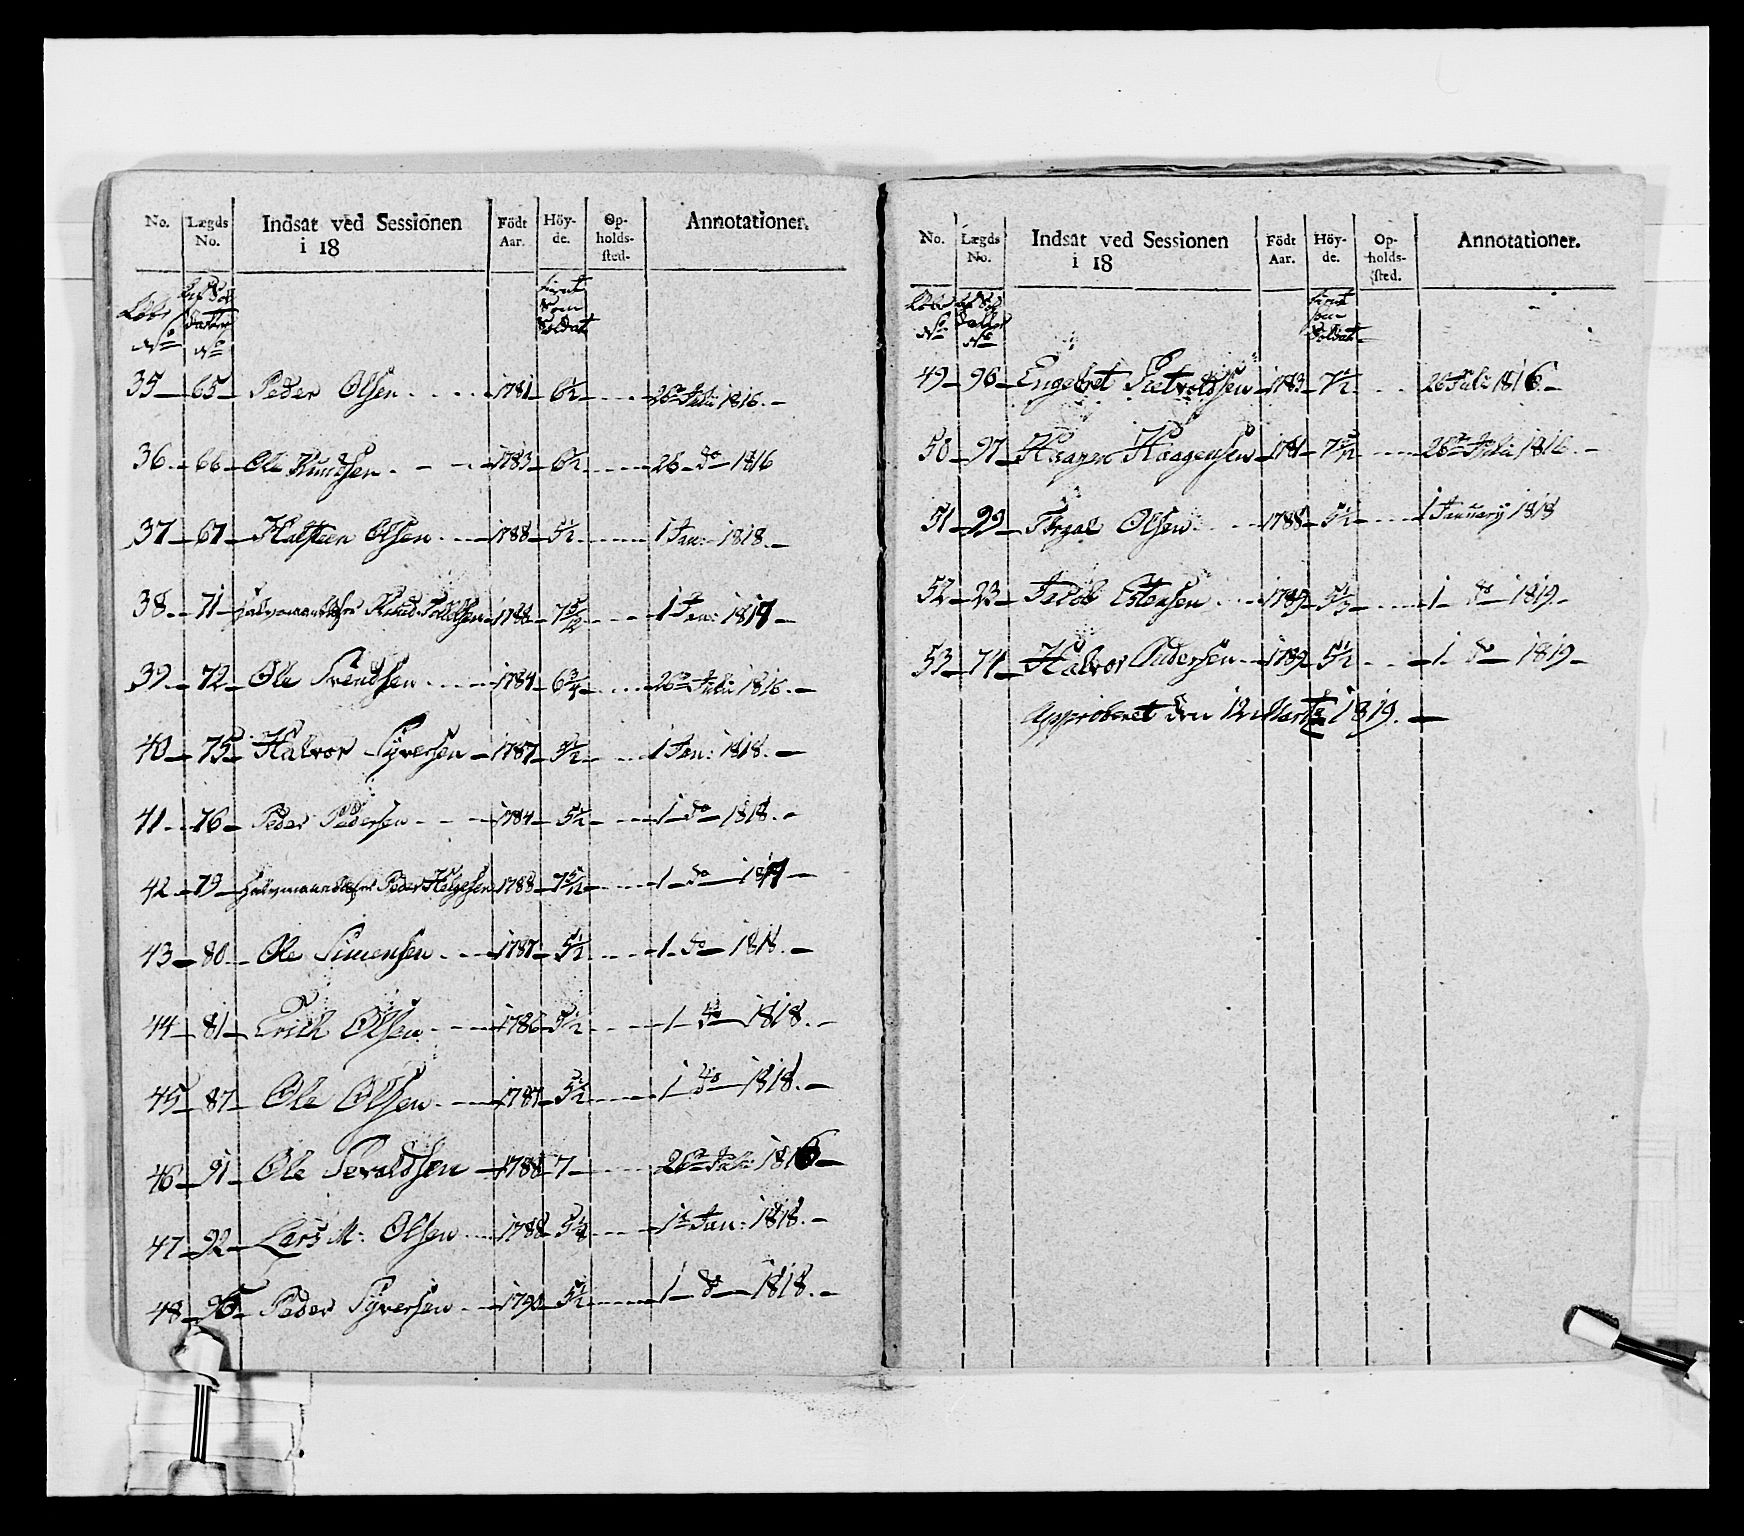 No. Lægds No. Indsat ved Sessionen i 18 Födt Aar. Höy-de. Op-holds-sted. Annotationer.
Löbe No Soldater No tient som Soldat
35 65 Peder Olsen 1781 6½ 26de Juli 1816.
36 66 Ole Knudsen 1783 6½ 26 do 1816
37 67 Halsteen Olsen 1788 5½ 1 Jan: 1818.
38 71 Knud 1788 7 5/12 1 Jan: 1817
39 72 Ole Svendsen 1784 6¾ 26de Juli 1816.
40 75 Halvor Syversen 1787 5½ 1 Jan: 1818.
41 76 Peder Pedersen 1784 5½ 1 do 1818.
42 79 Peder Helgesen 1788 7 5/12 1 do 1817
43 80 Ole Simensen 1787 5½ 1 do 1818.
44 81 Erich Olsen 1786 5½ 1 do 1818.
45 87 Ole Olsen 1787 5½ 1 do 1818.
46 91 Ole 1788 7 26de Juli 1816
47 92 Lars M: Olsen 1788 1 Jan: 1818.
48 95 Peder Syversen 1790 5½ 1 do 1818.
No. Lægds No. Indsat ved Sessionen i 18 Födt Aar. Höy-de. Op-holds-sted. Annotationer.
Löbe No No tient som Soldat
49 96 Engebret 1783 7½ 26 Juli 1816.
50 97 Haagen Haagensen 1781 26de Juli 1816.
51 29 Olsen 1788 5½ 1 January 1818
52 23 Jacob Estensen 1789 5⅓ 1 do 1819.
53 74 Halvor Pedersen 1789 5½ 1 do 1819
Approberet den 12 Marts 1819.